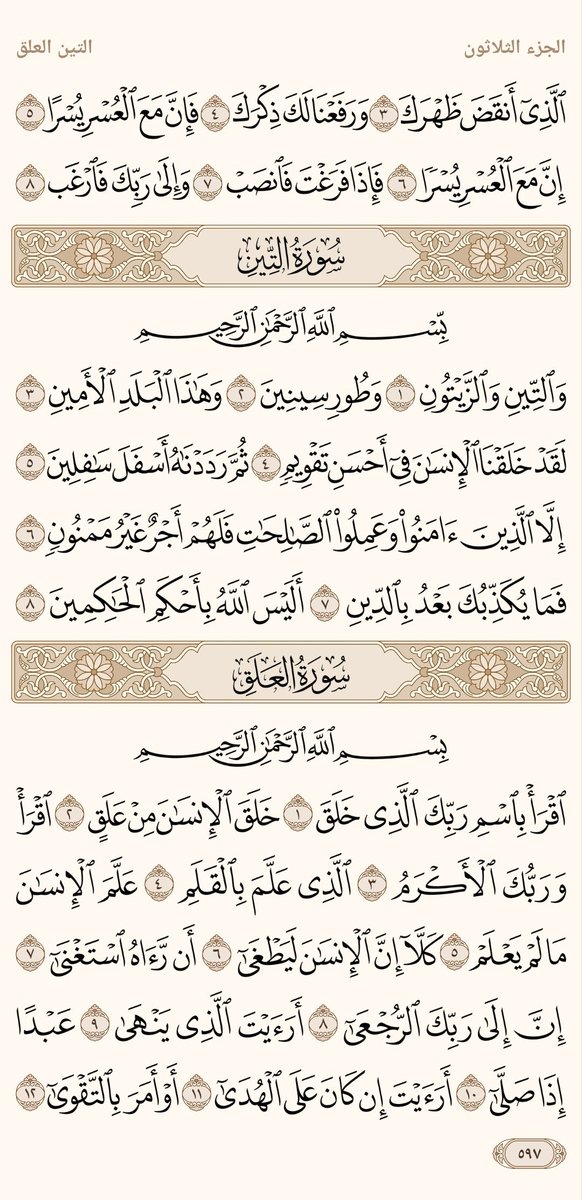 الجزء الثلاثون
التين العلق
ٱلَّذِىٓ أَنقَضَ ظَهْرَكَ ٣ وَرَفَعْنَا لَكَ ذِكْرَكَ ٤ فَإِنَّ مَعَ ٱلْعُسْرِ يُسْرًا ٥
إِنَّ مَعَ ٱلْعُسْرِ يُسْرًا ٦ فَإِذَا فَرَغْتَ فَٱنصَبْ ٧ وَإِلَىٰ رَبِّكَ فَٱرْغَب ٨
سُورَةُ التِّينِ
بِّسْمِ ٱللَّهِ ٱلرَّحْمَٰنِ ٱلرَّحِيمِ
وَٱلتِّينِ وَٱلزَّيْتُونِ ١ وَطُورِ سِينِينَ ٢ وَهَٰذَا ٱلْبَلَدِ ٱلْأَمِينِ ٣
لَقَدْ خَلَقْنَا ٱلْإِنسَٰنَ فِىٓ أَحْسَنِ تَقْوِيمٍ ٤ ثُمَّ رَدَدْنَٰهُ أَسْفَلَ سَٰفِلِينَ ٥
إِلَّا ٱلَّذِينَ ءَامَنُوا۟ وَعَمِلُوا۟ ٱلصَّٰلِحَٰتِ فَلَهُمْ أَجْرٌ غَيْرُ مَمْنُونٍ ٦
فَمَا يُكَذِّبُكَ بَعْدُ بِٱلدِّينِ ٧ أَلَيْسَ ٱللَّهُ بِأَحْكَمِ ٱلْحَٰكِمِينَ ٨
سُورَةُ العَلَقِ
بِسْمِ ٱللَّهِ ٱلرَّحْمَٰنِ ٱلرَّحِيمِ
ٱقْرَأْ بِٱسْمِ رَبِّكَ ٱلَّذِى خَلَقَ ١ خَلَقَ ٱلْإِنسَٰنَ مِنْ عَلَقٍ ٢ ٱقْرَأْ
وَرَبُّكَ ٱلْأَكْرَمُ ٣ ٱلَّذِى عَلَّمَ بِٱلْقَلَمِ ٤ عَلَّمَ ٱلْإِنسَٰنَ
مَا لَمْ يَعْلَمْ ٥ كَلَّآ إِنَّ ٱلْإِنسَٰنَ لَيَطْغَىٰٓ ٦ أَن رَّءَاهُ ٱسْتَغْنَىٰٓ ٧
إِنَّ إِلَىٰ رَبِّكَ ٱلرُّجْعَىٰٓ ٨ أَرَءَيْتَ ٱلَّذِى يَنْهَىٰ ٩ عَبْدًا
إِذَا صَلَّىٰٓ ١٠ أَرَءَيْتَ إِن كَانَ عَلَى ٱلْهُدَىٰٓ ١١ أَوْ أَمَرَ بِٱلتَّقْوَىٰٓ ١٢
٥٩٧